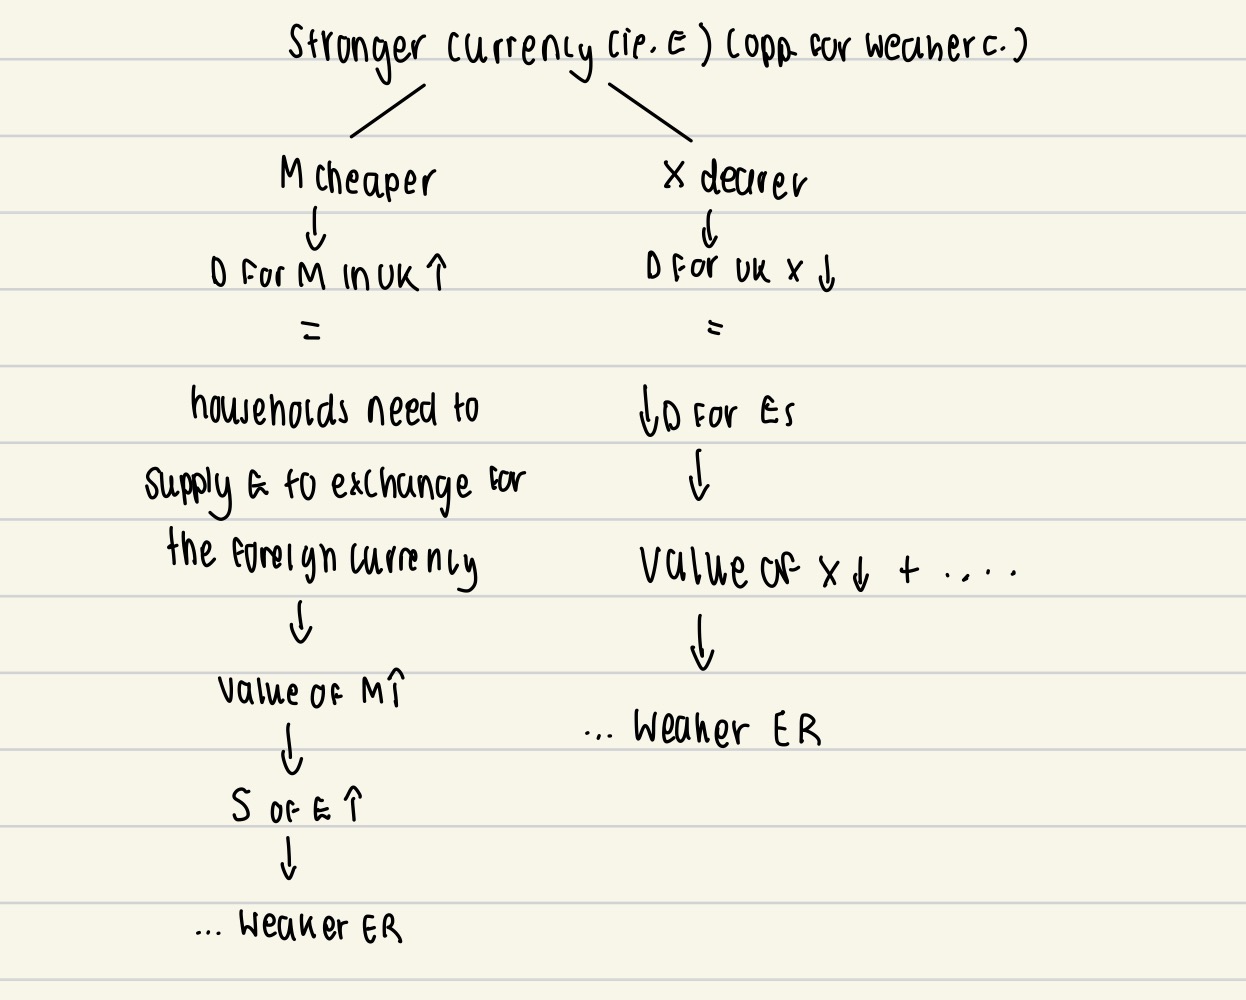 Stronger currency (ie. £) (opp. for weaker c.)
M cheaper
X dearer
↓
↓
D for M in UK ↑
D for UK X ↓
=
=
households need to
↓ D for £s
supply £ to exchange for
↓
the foreign currency
value of X ↓ + ....
↓
↓
value of M ↑
... weaker ER
↓
S of £ ↑
↓
... weaker ER